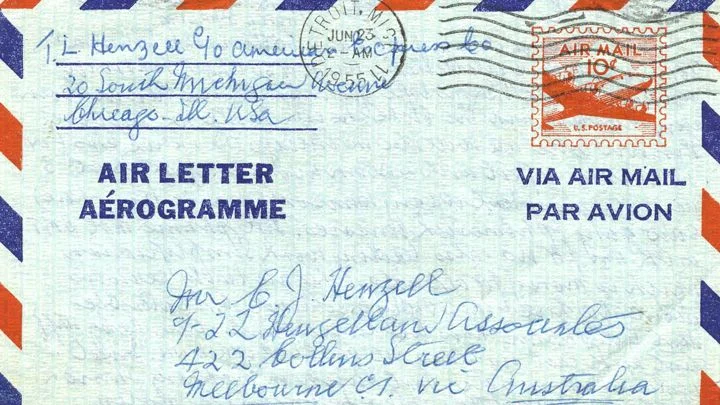 T. L Henzell c/o American Express Co
20 South Michigan Avenue
Chicago - Ill. USA
DETROIT, MICH.
JUN 23
2 - AM
1955
AIR MAIL
10¢
U.S. POSTAGE
AIR LETTER
AÉROGRAMME
VIA AIR MAIL
PAR AVION
Mr C. J. Henzell
Henzell and Associates
422 Collins Street
Melbourne C1. Vic Australia